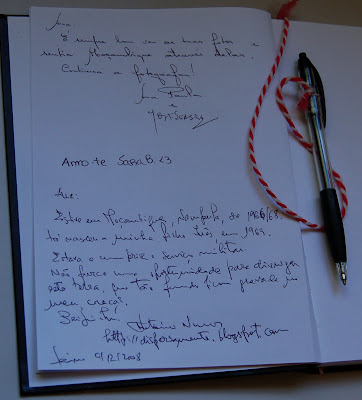 Ana
É sempre bom ver as tuas fotos e
minha Moçambique através delas.
Continua a fotografar!
Ana Paula
e
Amo-te Sara B. <3
Ana:
Estive em Moçambique, Nampula, de 1966/68
tá nasceu a minha filha Inês em 1969.
Estava o em pleno serviço militar.
Não perco uma oportunidade para divulgar
esta terra, que tão fundo ficou gravada no
meu coração.
António Nunes
http://disfersamente.blogspot.com
9/12/2008